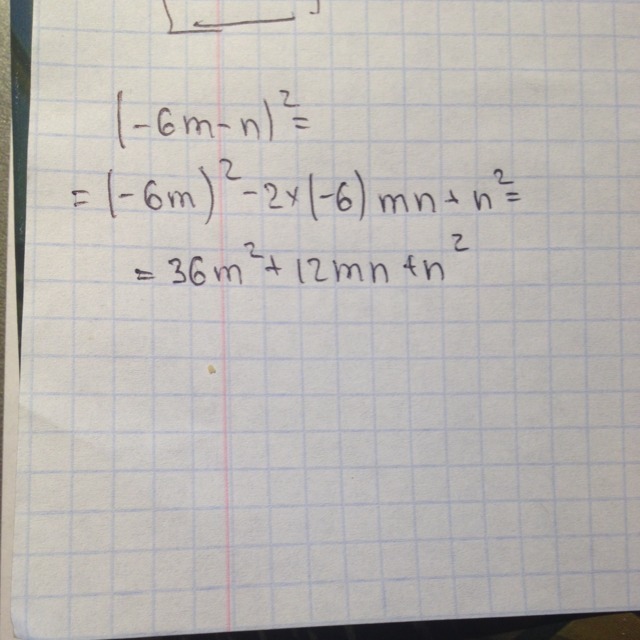 (-6m-n)²=
=(-6m)²-2×(-6)mn+n²=
=36m²+12mn+n²